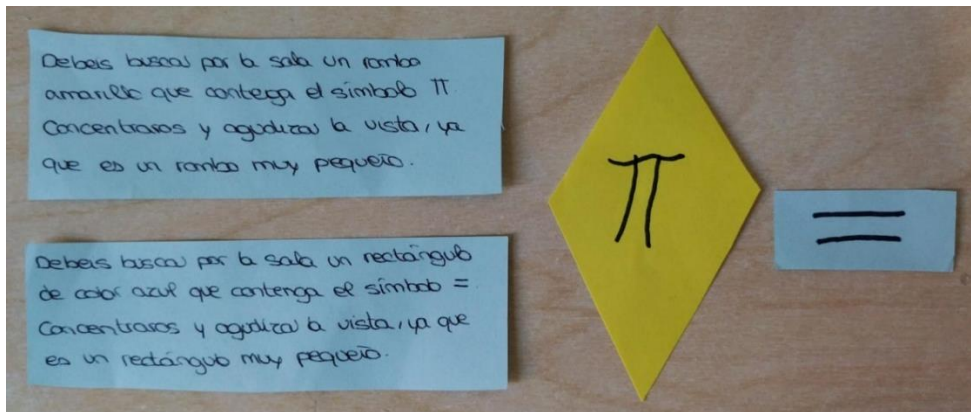 Debeis buscar por la sala un rombo
amarillo que contega el símbolo π
Concentraros y agudizar la vista, ya
que es un rombo muy pequeño.
Debeis buscar por la sala un rectángulo
de color azul que contenga el símbolo =
Concentraros y agudizar la vista, ya que
es un rectángulo muy pequeño.
π
=